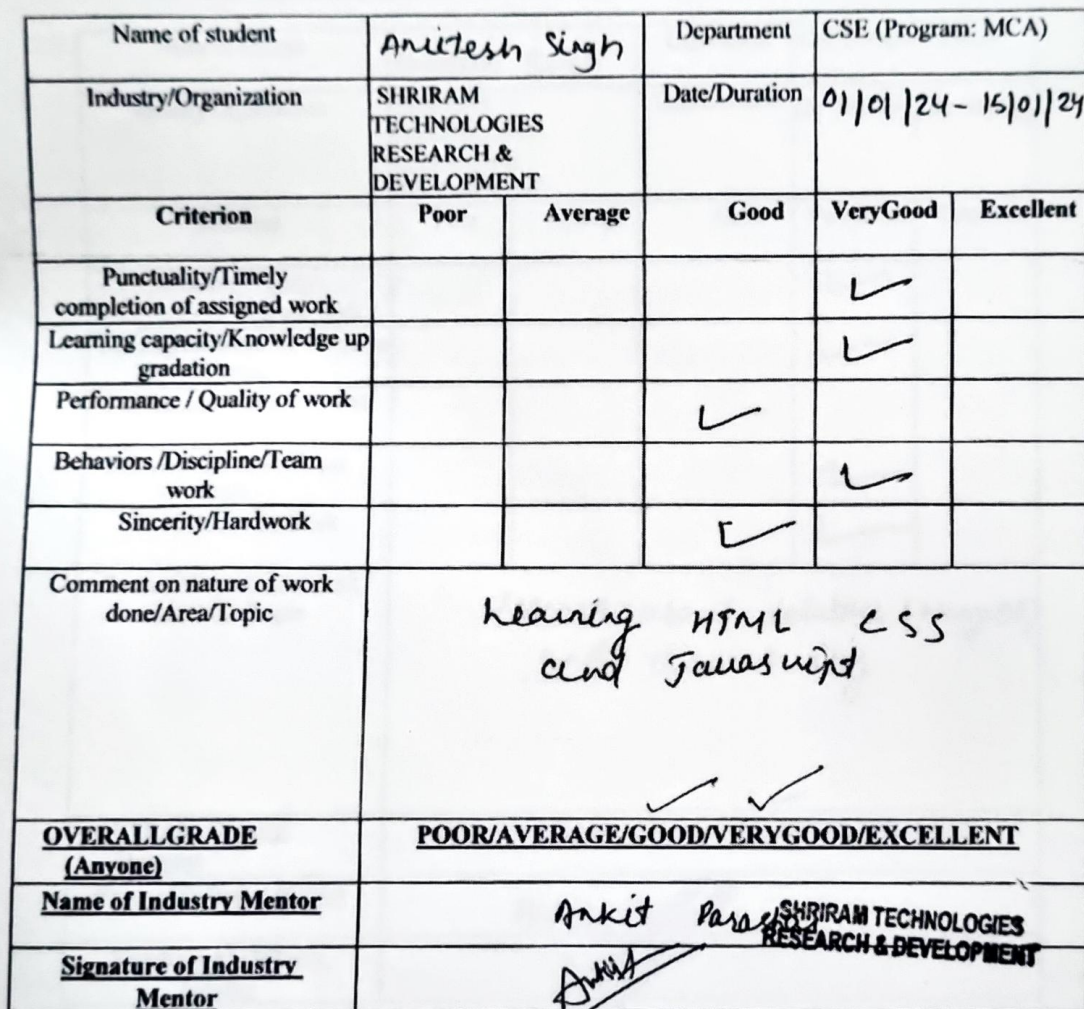 Name of student
Anitesh Singh
Department
CSE (Program: MCA)
Industry/Organization
SHRIRAM
TECHNOLOGIES
RESEARCH &
DEVELOPMENT
Date/Duration
01/01/24 - 15/01/24
Criterion Poor Average Good VeryGood Excellent
Punctuality/Timely
completion of assigned work
✓
Learning capacity/Knowledge up
gradation
✓
Performance / Quality of work
✓
Behaviors /Discipline/Team
work
✓
Sincerity/Hardwork
✓
Comment on nature of work
done/Area/Topic
Learning HTML CSS
and Javascript
✓ ✓
OVERALLGRADE
(Anyone)
POOR/AVERAGE/GOOD/VERYGOOD/EXCELLENT
Name of Industry Mentor
Ankit
SHRIRAM TECHNOLOGIES
RESEARCH & DEVELOPMENT
Signature of Industry
Mentor